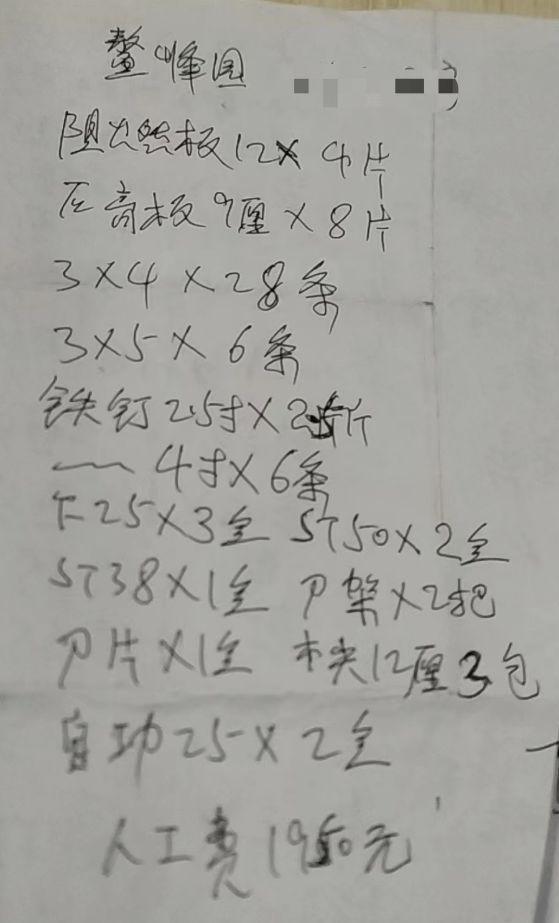 鳌峰园
阻燃板12× 4片
石膏板9厘×8片
3×4×28条
3×5×6条
铁钉2.5寸×2斤
〜 4寸×6条
F25×3全 ST50×2全
ST38×1全 刀架×2把
刀片×1全 木尖12厘3包
自功25×2全
人工费1950元